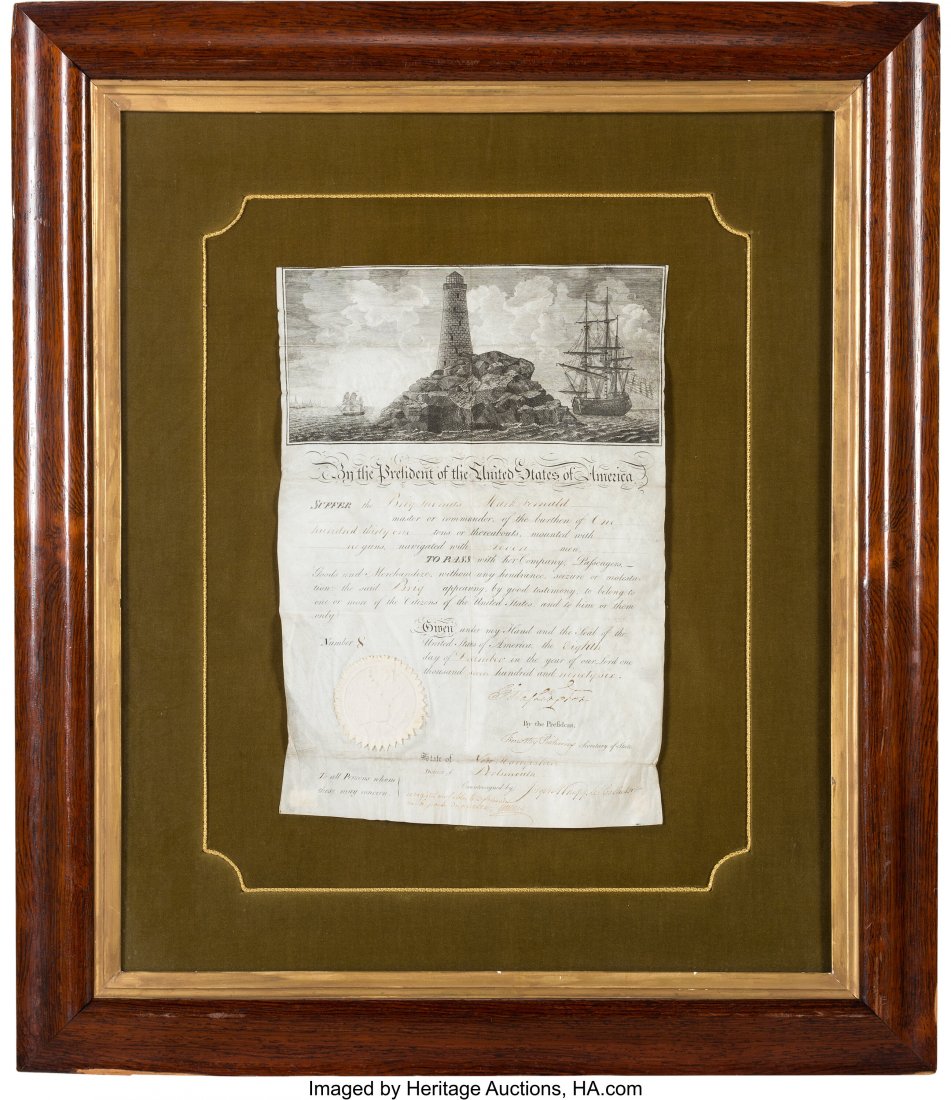 By the President of the United States of America
SUFFER the Brig Mark Fernald
master or commander, of the burthen of One
hundred thirty one tons or thereabouts, mounted with
no guns, navigated with seven men,
TO PASS with her Company, Passengers, –
Goods and Merchandize, without any hindrance, seizure or molesta-
tion: the said Brig appearing by good testimony, to belong to
one or more of the Citizens of the United States, and to him or them
only.
Given under my Hand and the Seal of the
United States of America, the Eighth
day of December in the year of our Lord one
thousand seven hundred and ninety six.
Number 8
By the President,
Timothy Pickering Secretary of State
State of New Hampshire
District of Portsmouth
To all Persons whom
these may concern.
Countersigned by,
Imaged by Heritage Auctions, HA.com